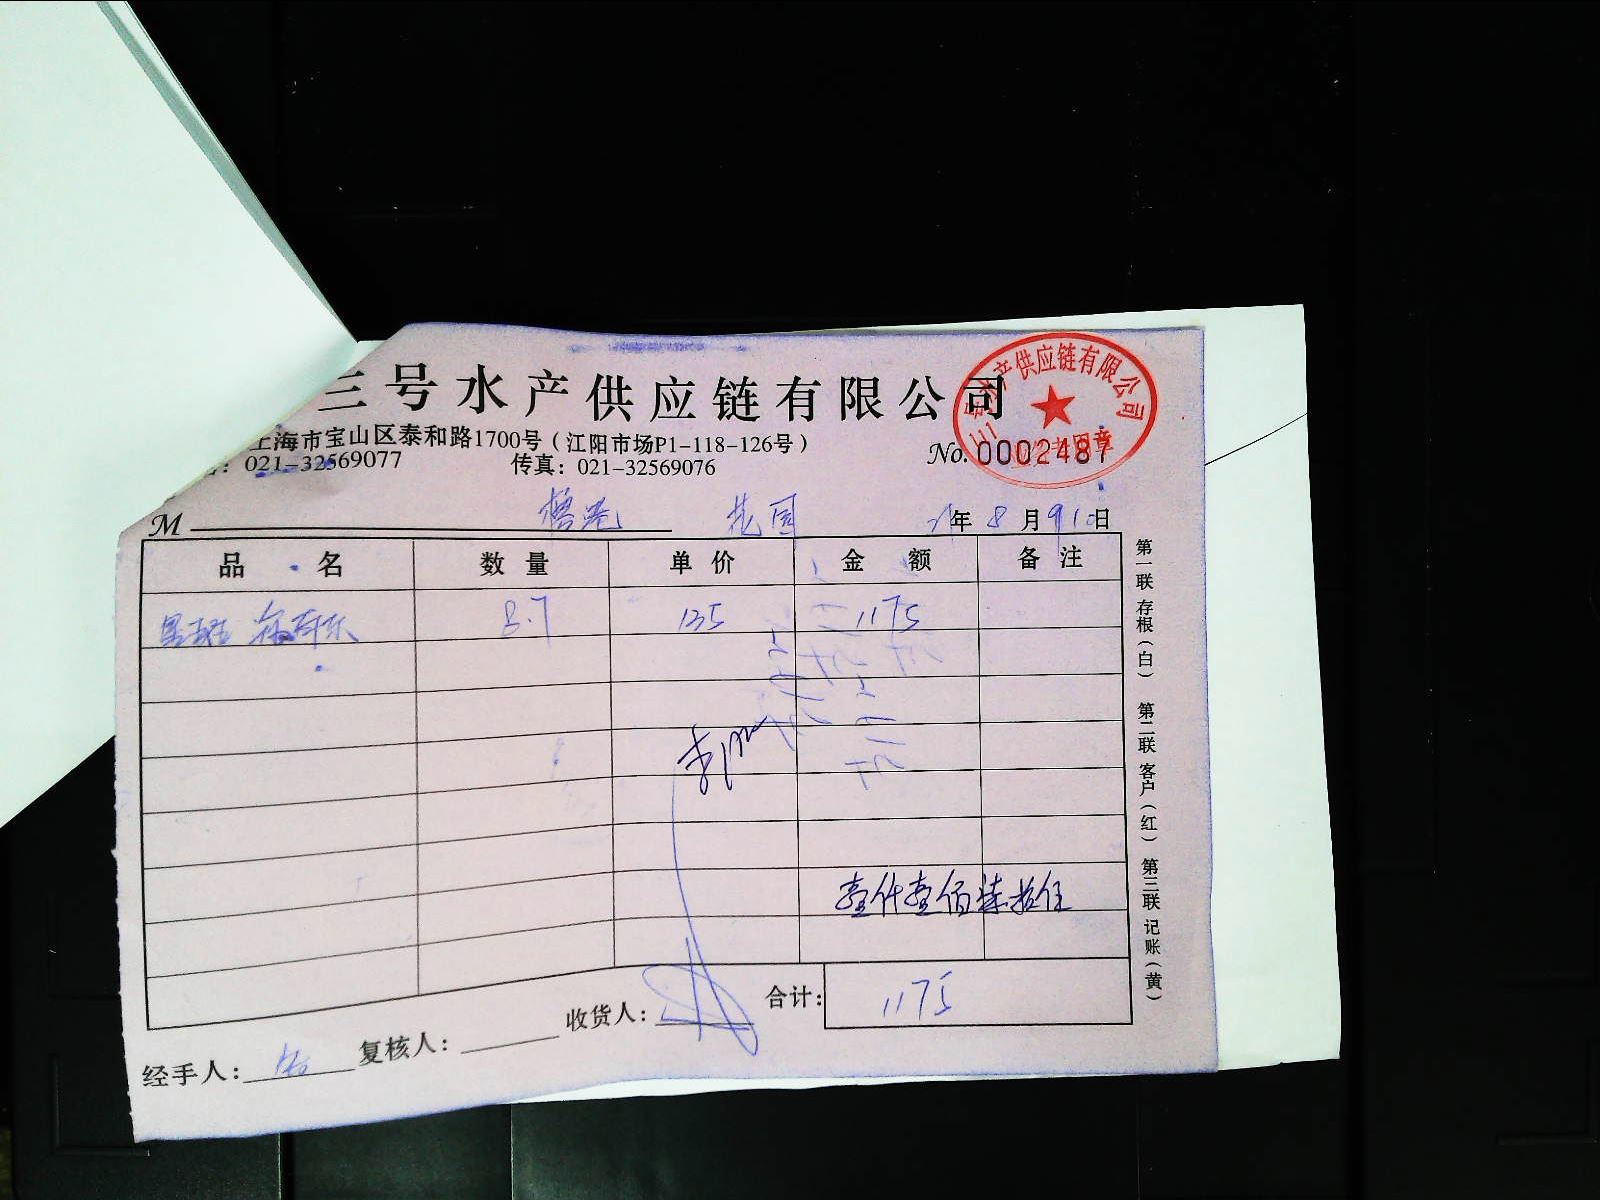 三号水产供应链有限公司
上海市宝山区泰和路1700号（江阳市场P1-118-126号）
：021-32569077 传真：021-32569076
No. 0002487
水产供应链有限公司
M 花园 21年8月910日
品名 数量 单价 金额 备注
8.7 135 1175
壹仟壹佰柒拾伍
合计： 1175
收货人：
复核人：
经手人：
第一联 存根（白） 第二联 客户（红） 第三联 记账（黄）